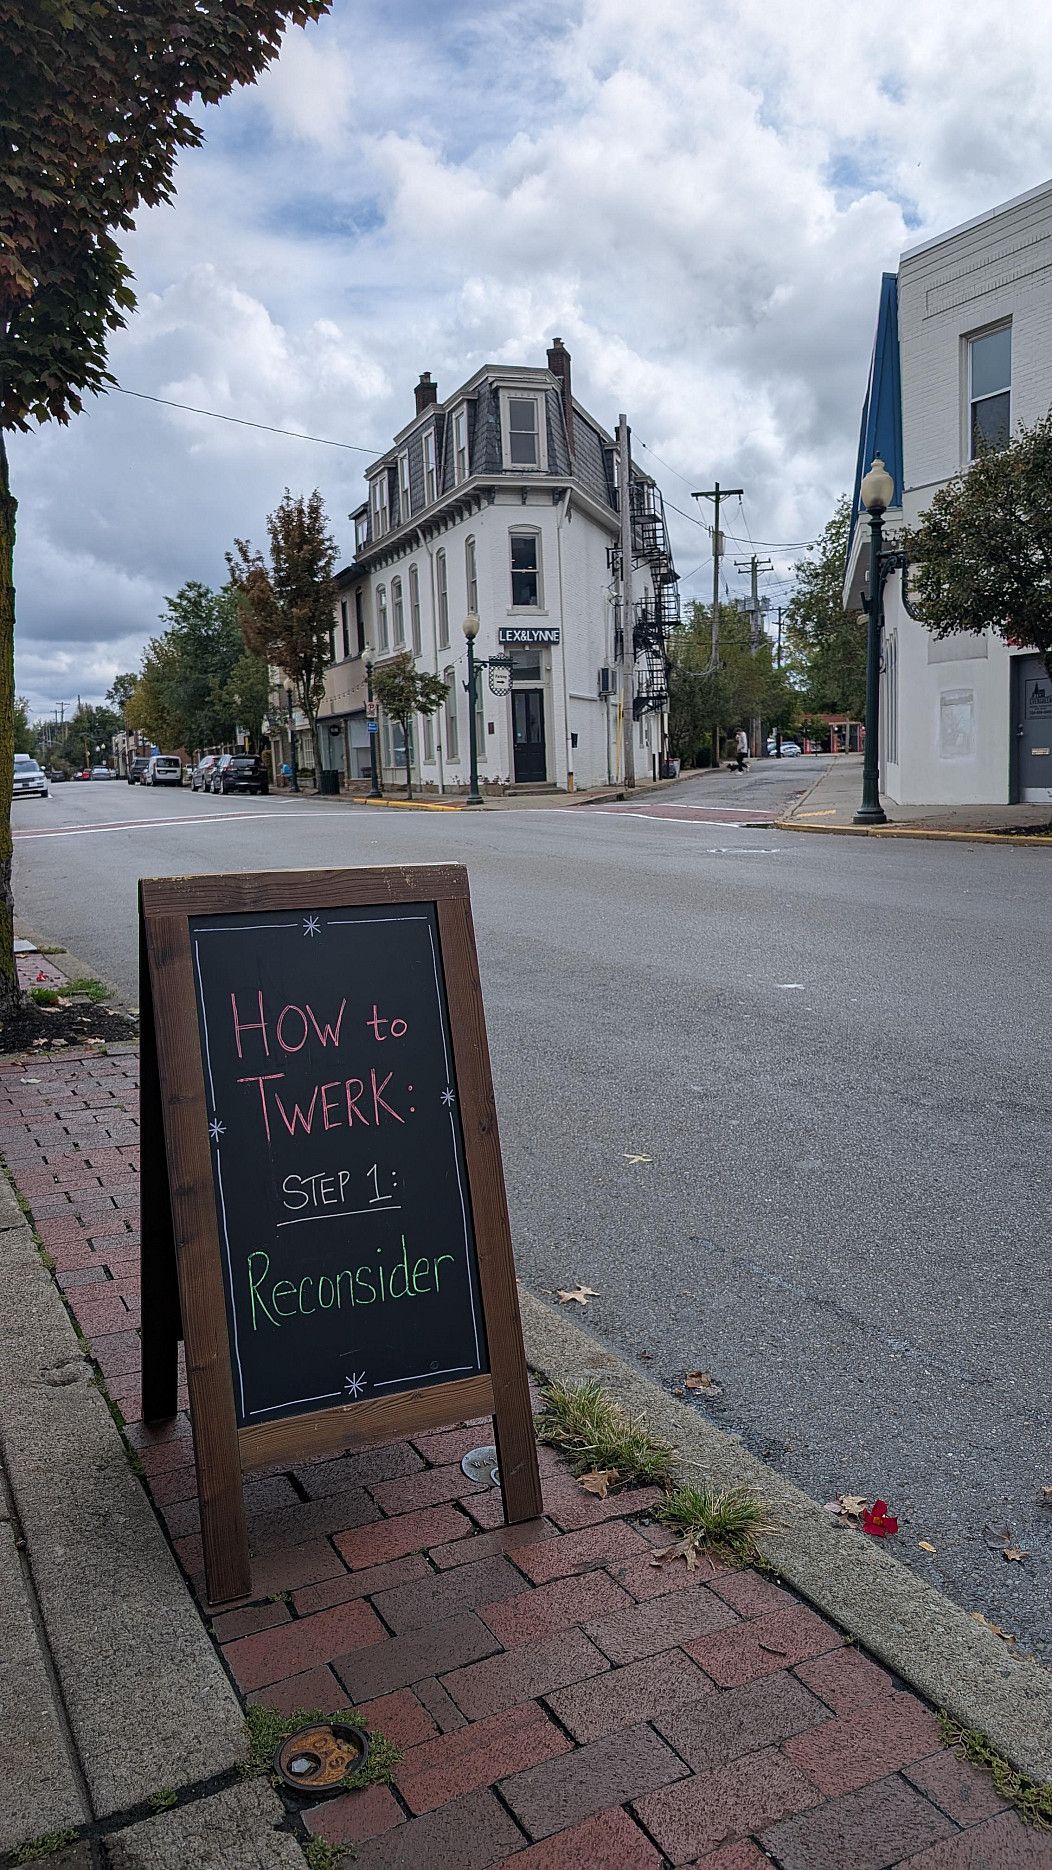 LEX&LYNNE
Parking
HOW to
TWERK:
STEP 1:
Reconsider